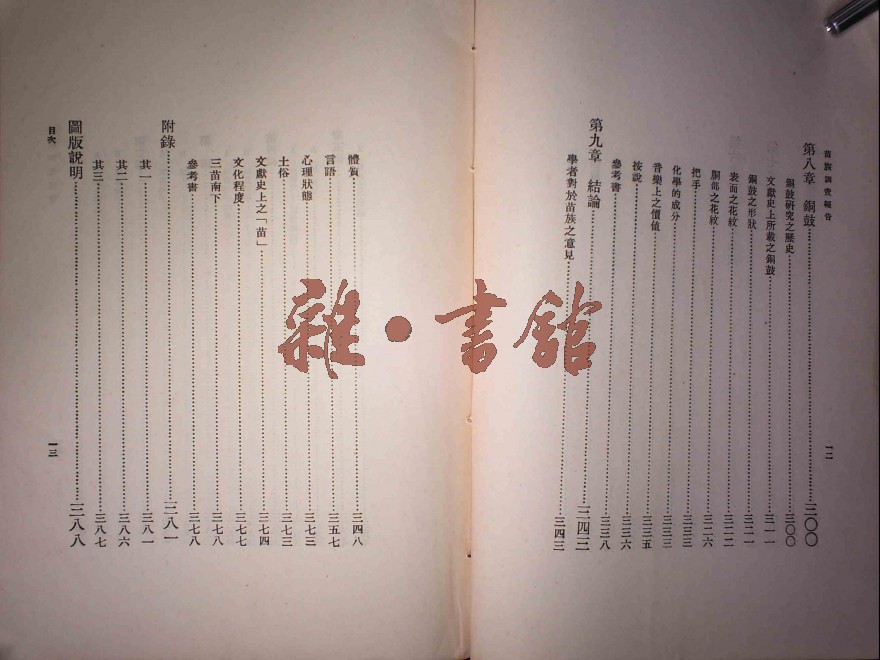 苗族調查報告
第八章 銅鼓 三〇〇
銅鼓研究之歷史 三〇〇
文獻史上所載之銅鼓 三一一
銅鼓之形狀 三二一
表面之花紋 三二二
胴部之花紋 三二六
把手 三三三
化學的成分 三三三
音樂上之價値 三三五
按說 三三六
參考書 三三八
第九章 結論 三四三
學者對於苗族之意見 三四三
一二
體質 三四八
言語 三五七
心理狀態 三七三
土俗 三七三
文獻史上之「苗」 三七四
文化程度 三七七
三苗南下 三七八
參考書 三七八
附錄 三八一
其一 三八一
其二 三八六
其三 三八七
圖版說明 三八八
目次
一三
雜·書館